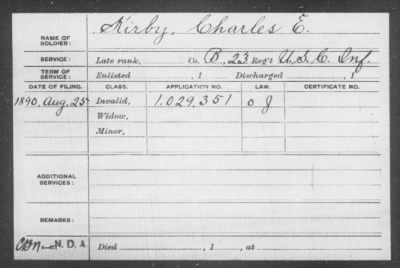 NAME OF SOLDIER: Kirby, Charles E.
SERVICE: Late rank, Co. B, 23 Reg't U.S.C. Inf.
TERM OF SERVICE: Enlisted , 1 Discharged , 1
DATE OF FILING. CLASS. APPLICATION NO. LAW. CERTIFICATE NO.
1890, Aug. 25 Invalid, 1.029.351
Widow,
Minor,
ADDITIONAL SERVICES:
REMARKS:
N. D. A Died , 1 , at